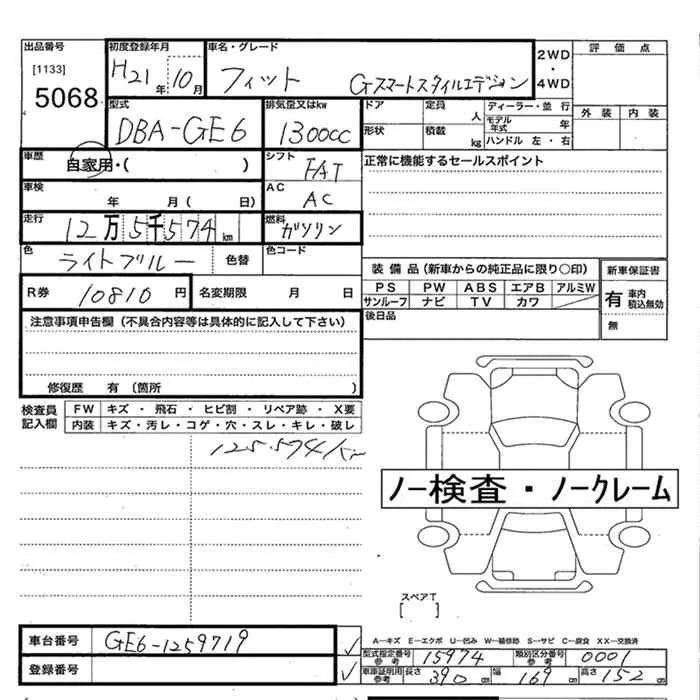 出品番号 初度登録年月 車名・グレード 2WD・4WD 評価点
[1133] H21年 10月 フィット Gスマートスタイルエデション
5068 外装 内装
型式 排気量又はkw ドア 定員 人 ディーラー・並行
DBA-GE6 1300cc 形状 積載 kg モデル年式 年
ハンドル 左・右
車歴 自家用・( ) シフト FAT 正常に機能するセールスポイント
車検 年 月( 日) AC AC
走行 12万5千574km 燃料 ガソリン
色 ライトブルー 色替 色コード
装備品(新車からの純正品に限り○印) 新車保証書
R券 10810円 名変期限 月 日 PS PW ABS エアB アルミW 有 車内積込無効
サンルーフ ナビ TV カワ 無
注意事項申告欄(不具合内容等は具体的に記入して下さい) 後日品
修復歴 有(箇所 )
検査員記入欄 FW キズ・飛石・ヒビ割・リペア跡・X要
内装 キズ・汚レ・コゲ・穴・スレ・キレ・破レ
125.574km
ノー検査・ノークレーム
スペアT
[ ]
A—キズ E—エクボ U—凹み W—補修跡 S—サビ C—腐食 XX—交換済
車台番号 GE6-1259719 型式指定番号 参考 15974 類別区分番号 参考 0001
登録番号 車車証明用 参考 長さ 390cm 幅 169cm 高さ 152cm